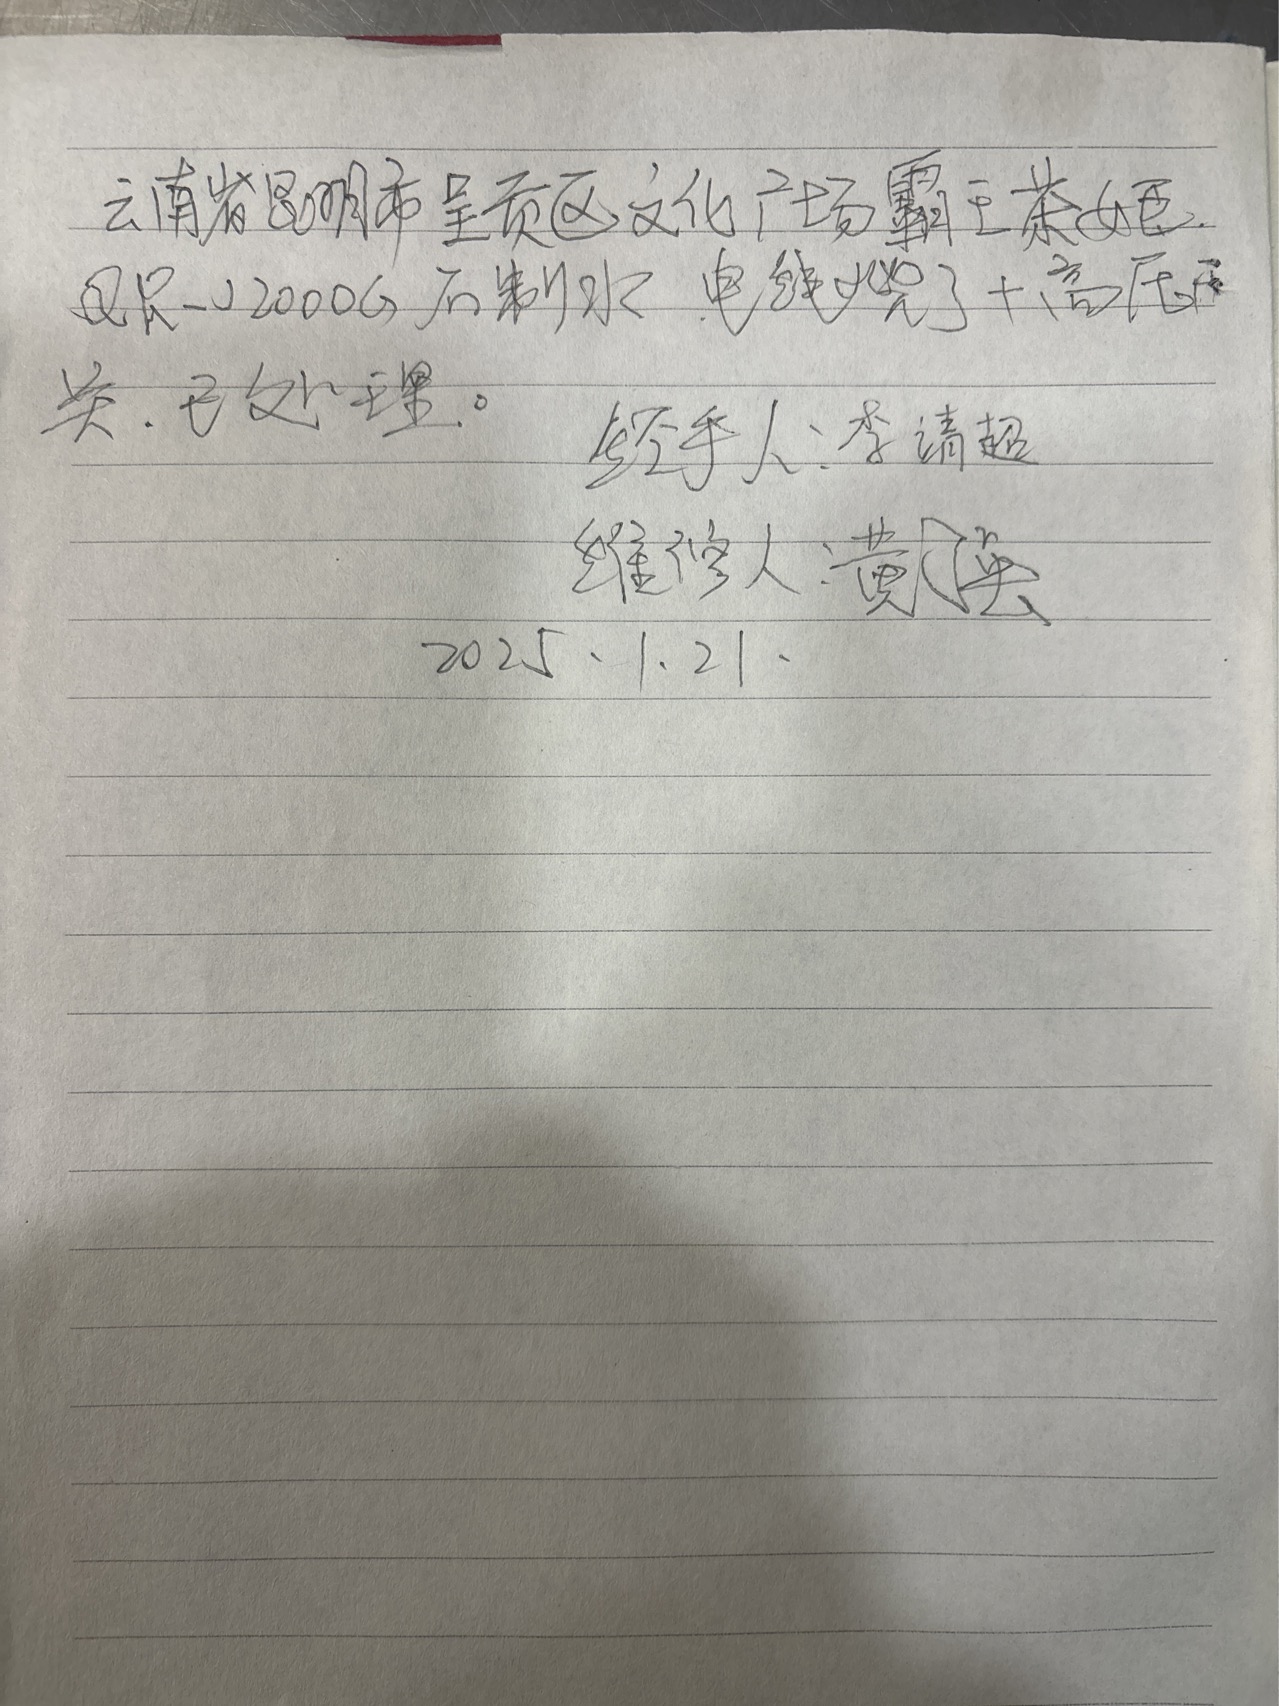 云南省昆明市呈贡区文化广场霸王茶姬.
QR-J2000G 不制水 电线火烧了+高压开
关.已处理。
经手人:李请超
维修人:黄
2025.1.21.